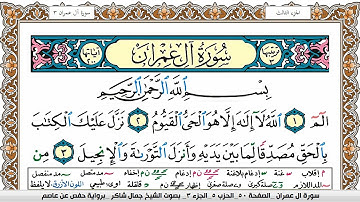 سورة آل عمران ٣
الجزء الثالث
سُورَةُ آلِ عِمْرَانَ
بِسْمِ اللَّهِ الرَّحْمَٰنِ الرَّحِيمِ
الٓمٓ ١ اللَّهُ لَا إِلَٰهَ إِلَّا هُوَ الْحَيُّ الْقَيُّومُ ٢ نَزَّلَ عَلَيْكَ الْكِتَابَ
بِالْحَقِّ مُصَدِّقًا لِمَا بَيْنَ يَدَيْهِ وَأَنْزَلَ التَّوْرَاةَ وَالْإِنْجِيلَ ٣ مِنْ
سورة آل عمران الصفحة ٥٠ الحزب ٥ الجزء ٣ بصوت الشيخ جمال شاكر برواية حفص عن عاصم